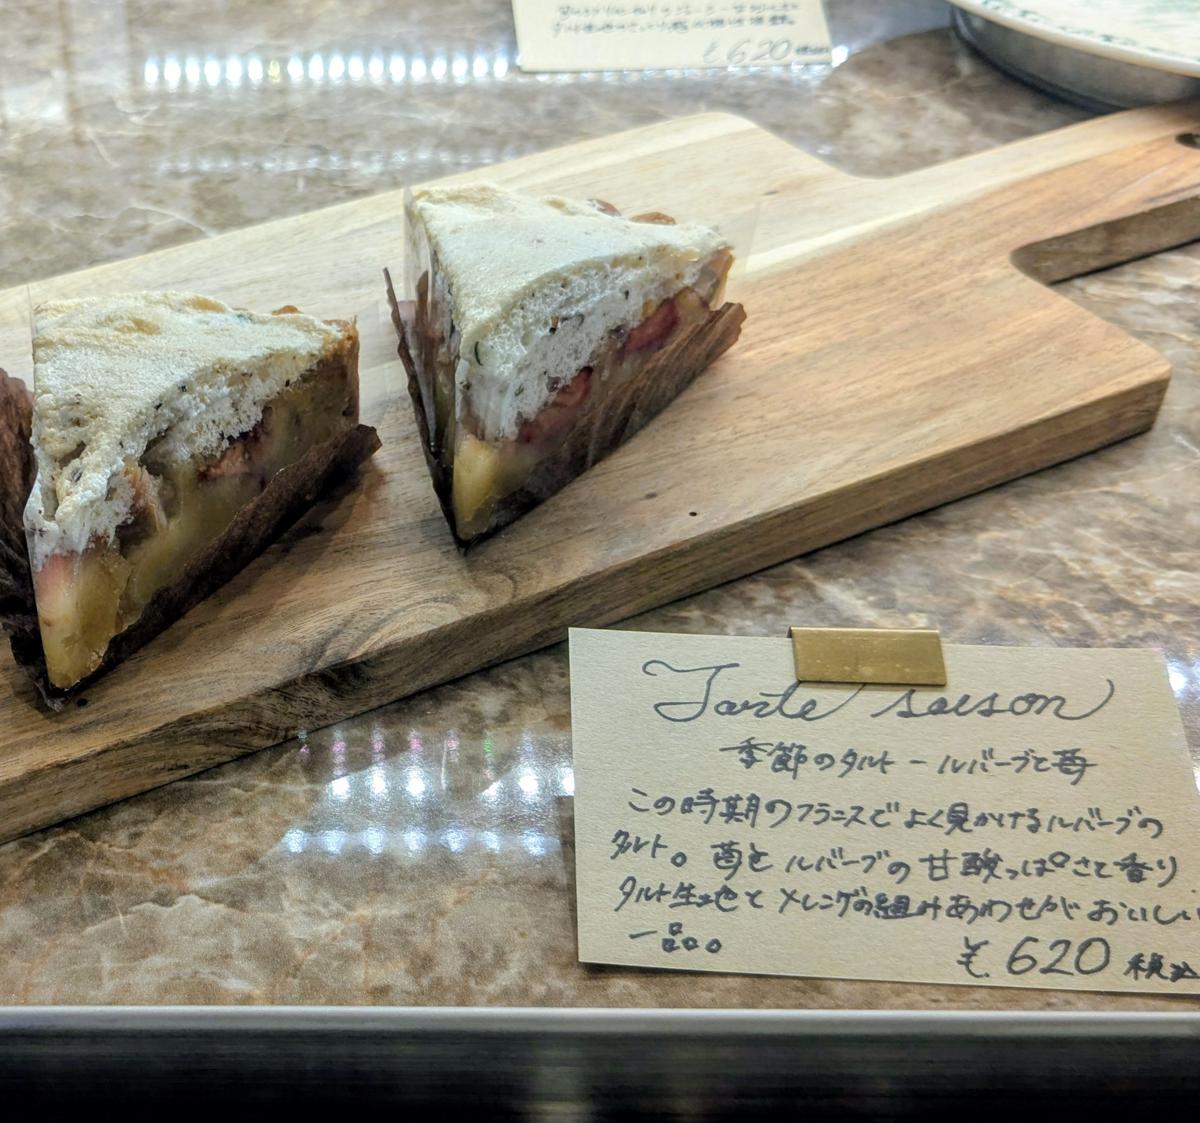 ¥620
Tarte saison
季節のタルト - ルバーブと苺
この時期のフランスでよく見かけるルバーブの
タルト。苺とルバーブの甘酸っぱさと香り
タルト生地とメレンゲの組みあわせがおいしい
一品。
¥620 税込